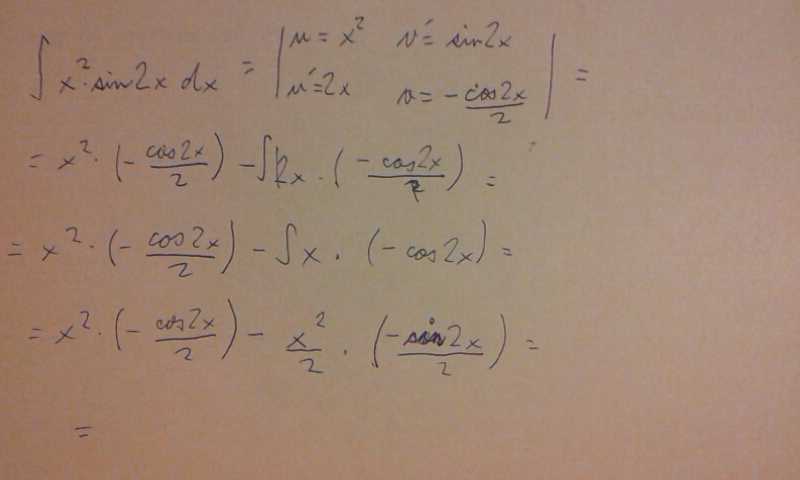 ∫ x²·sin2x dx = | u = x² v' = sin2x u' = 2x v = -cos2x/2 | =
= x²·(-cos2x/2) - ∫2x·(-cos2x/2) =
= x²·(-cos2x/2) - ∫x·(-cos2x) =
= x²·(-cos2x/2) - x²/2·(-sin2x/2) =
=